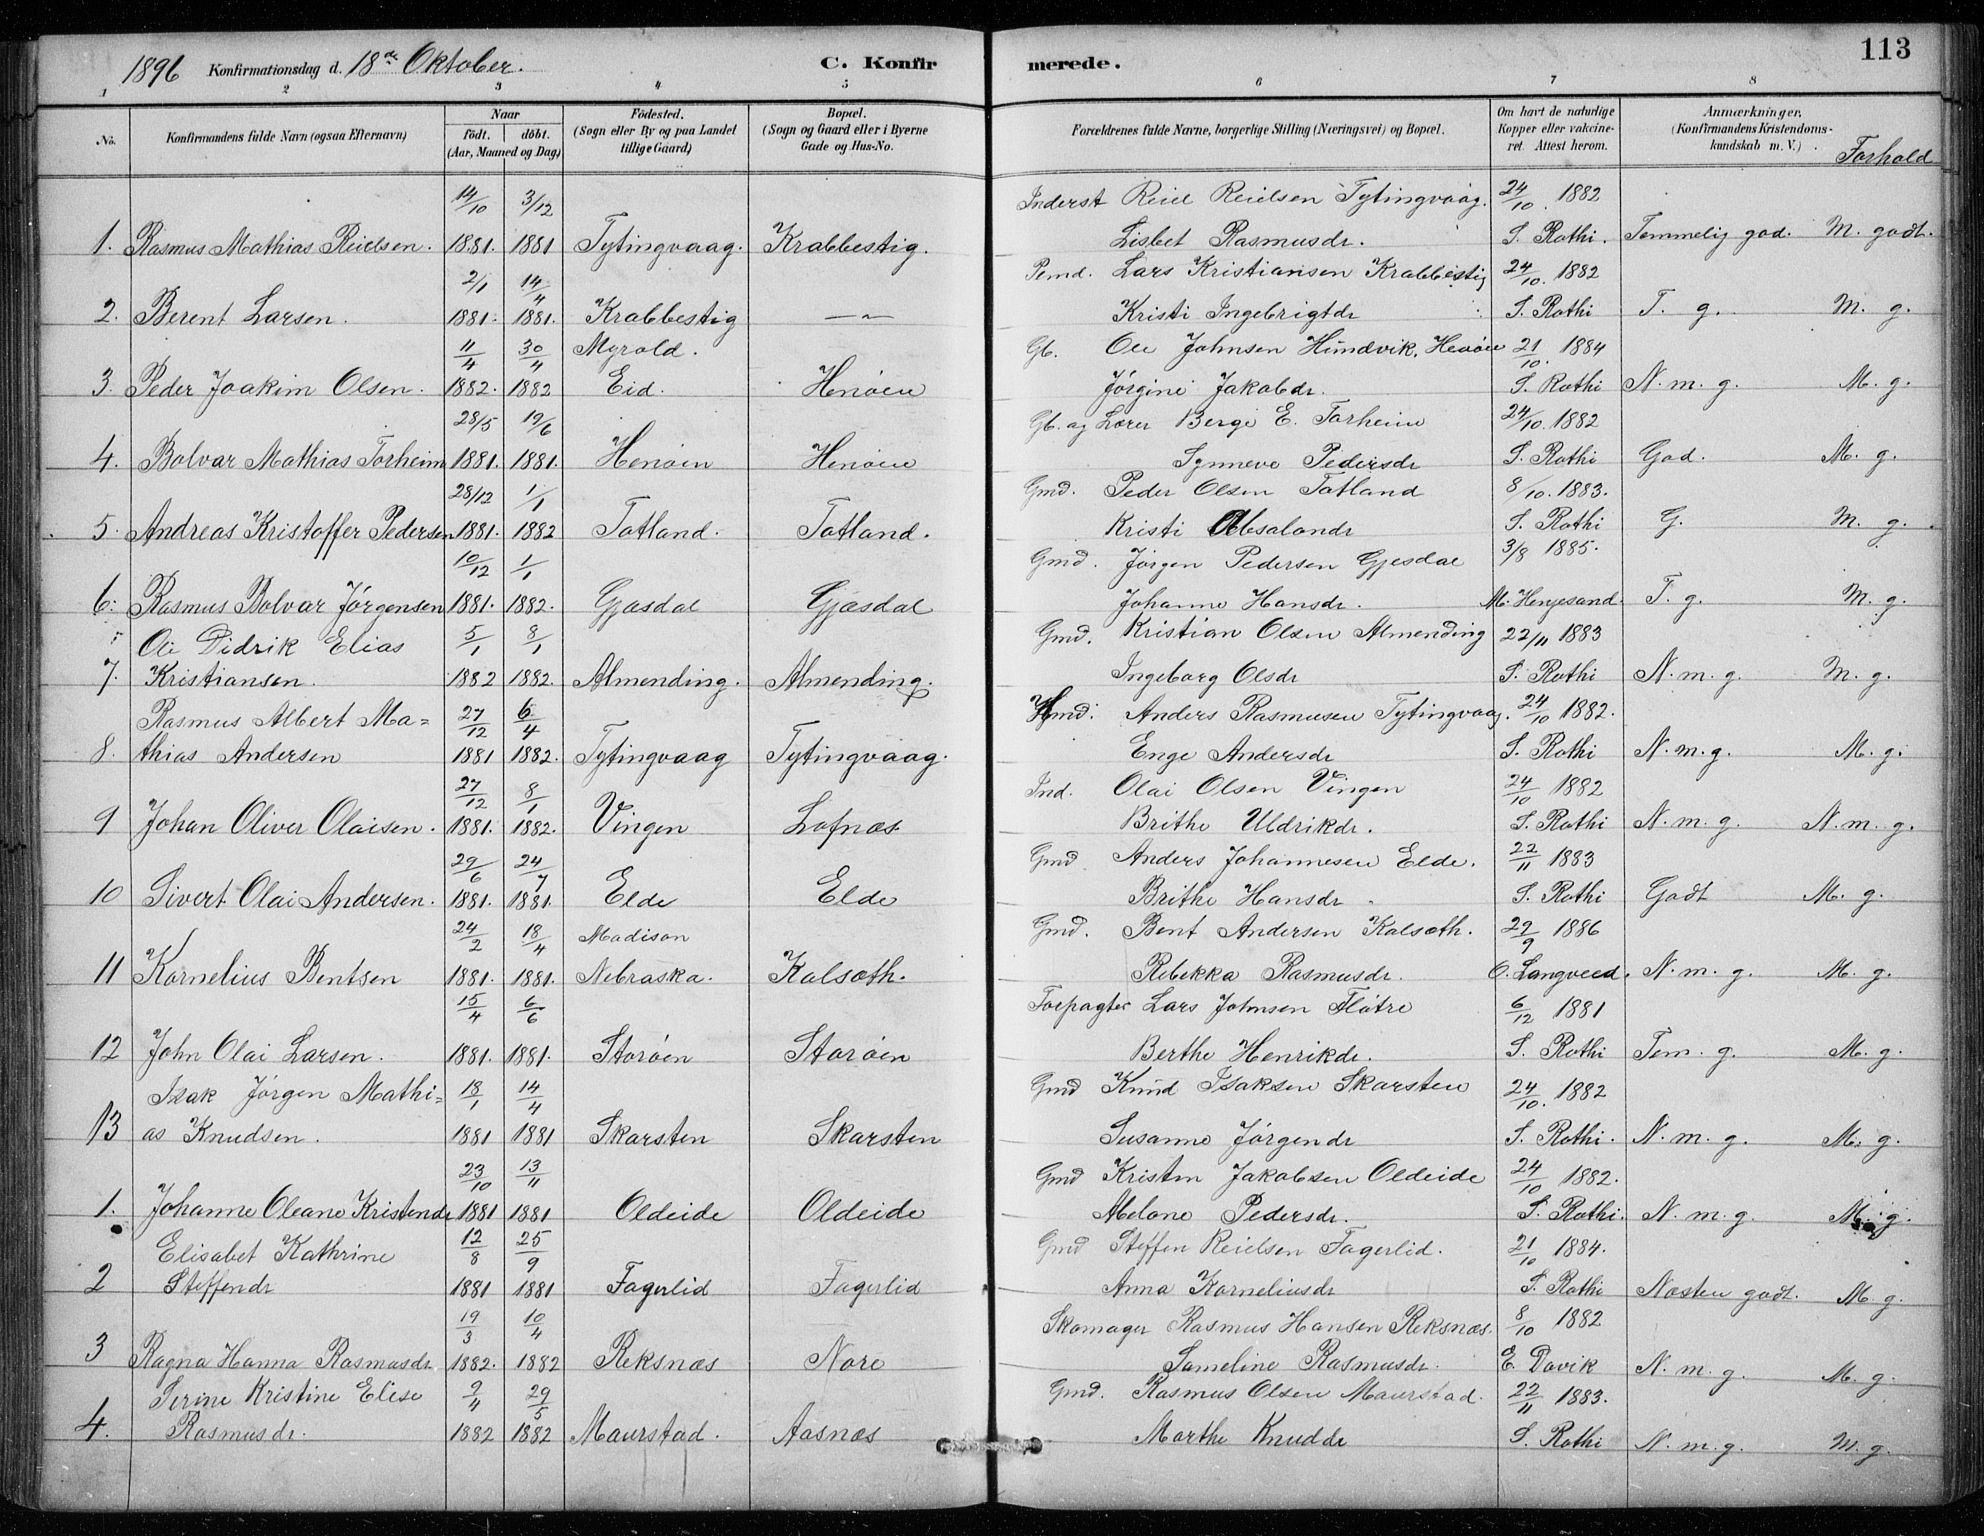 1896 Konfirmationsdag d. 18de Oktober. C. Konfirmerede. 113
1 2 3 4 5 6 7 8
No. Konfirmandens fulde Navn (ogsaa Efternavn) Naar født. døbt. (Aar, Maaned og Dag) Fødested. (Sogn eller By og paa Landet tillige Gaard) Bopæl. (Sogn og Gaard eller i Byerne Gade og Hus-No. Forældrenes fulde Navne, borgerlige Stilling (Næringsvei) og Bopæl. Om havt de naturlige Kopper eller vakcineret. Attest herom. Anmærkninger, (Konfirmandens Kristendomskundskab m. V.) Forhold
14/10 3/12 Inderst Reiel Reielsen Tytingvaag. 24/10. 1882
1. Rasmus Mathias Reielsen. 1881. 1881 Tytingvaag. Krabbestig. Lisbet Rasmusdr. S. Rothi. Temmelig god. M. godt.
2/1 14/4 Pmd. Lars Kristiansen Krabbestig 24/10. 1882
2. Berent Larsen. 1881. 1881. Krabbestig —„— Kristi Ingebrigtdr S. Rothi T. g. M. g.
11/4 30/4 Myrold. Gb. Ole Johnsen Hundvik, Henøen 21/10. 1884
3. Peder Joakim Olsen. 1882. 1882 Eid. Henøen Jørgine Jakobdr. S. Rothi N. m. g. M. g.
28/5 19/6 Gb. og Lærer Berge E. Torheim 24/10. 1882
4. Bolvar Mathias Torheim 1881. 1881. Henøen Henøen Synneve Pedersdr S. Rothi God. M. g.
28/12 1/1 Gmd. Peder Olsen Totland 8/10. 1883.
5. Andreas Kristoffer Pedersen 1881. 1882 Totland. Totland. Kristi Absalondr S. Rothi G. M. g.
10/12 1/1 Gmd. Jørgen Pedersen Gjesdal 3/8 1885.
6. Rasmus Bolvar Jørgensen 1881. 1882. Gjæsdal Gjæsdal Johanne Hansdr. M. Henjesand. T. g. M. g.
Ole Didrik Elias 5/1 8/1 Gmd. Kristian Olsen Almending 22/11 1883
7. Kristiansen. 1882 1882. Almending. Almending. Ingeborg Olsdr S. Rothi N. m. g. M. g.
Rasmus Albert Ma= 27/12 6/4 Hmd. Anders Rasmusen Tytingvaag. 24/10 1882.
8. thias Andersen 1881 1882. Tytingvaag Tytingvaag. Enge Andersdr S. Rothi N. m. g. M. g.
27/12 8/1 Ind. Olai Olsen Vingen 24/10 1882
9 Johan Oliver Olaisen. 1881. 1882. Vingen Lofnæs Brithe Uldrikdr. S. Rothi N. m. g. N. m. g.
29/6 24/7 Gmd Anders Johannesen Elde. 22/11 1883
10 Sivert Olai Andersen. 1881. 1881. Elde Elde Brithe Hansdr S. Rothi Godt M. g.
24/2 18/4 Madison Gmd. Bent Andersen Kalsæth. 29/9 1886
11 Kornelius Bentsen 1881. 1881. Nebraska. Kalsæth. Rebekka Rasmusdr. O. Langveed. N. m. g. M. g.
15/4 6/6 Forpagter Lars Johnsen Flotre 6/12 1881
12 John Olai Larsen. 1881. 1881. Storøen Storøen Berthe Henrikdr. S. Rothi Tem. g. M. g.
Isak Jørgen Mathi= 18/1 14/4 Gmd Knud Isaksen Skarsten 24/10. 1882
13 as Knudsen. 1881 1881 Skarsten Skarsten Susanne Jørgendr S. Rothi. N. m. g. M. g.
23/10 13/11 Gmd Kristen Jakobsen Oldeide 24/10 1882.
1. Johanne Oleane Kristendr 1881 1881 Oldeide Oldeide Melone Pedersdr. S. Rothi. N. m. g. M. g.
Elisabet Kathrine 12/8 25/9 Gmd Steffen Reielsen Fagerlid. 21/10 1884.
2 Steffendr 1881 1881 Fagerlid Fagerlid Anna Korneliusdr S. Rothi Næsten godt. M. g.
19/3 10/4 Skomager Rasmus Hansen Reksnæs. 8/10 1882
3 Ragna Hanna Rasmusdr 1882. 1882 Reksnæs Nore Sameline Rasmusdr. E. Davik N. m. g. M. g.
Serine Kristine Elise 9/4 29/5 Gmd. Rasmus Olsen Maurstad. 22/11 1883.
4. Rasmusdr. 1882 1882 Maurstad. Aasnæs Marthe Knuddr S. Rothi N. m. g. M. g.